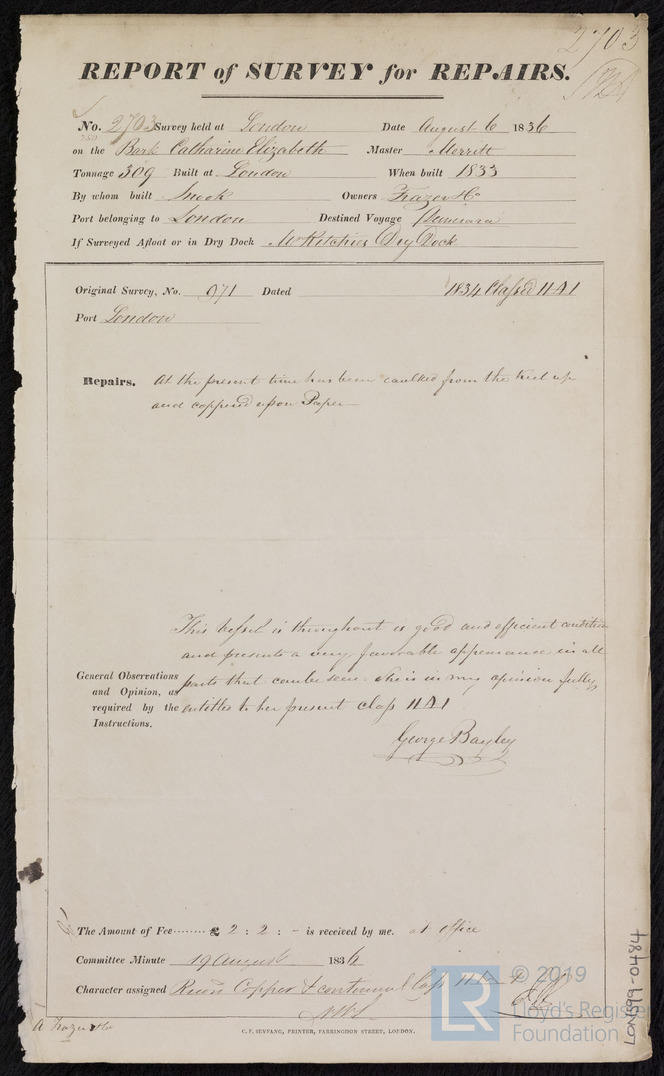 2703
REPORT of SURVEY for REPAIRS.
No. 2703 Survey held at London Date August 6 1836
on the Bark Catharine Elizabeth Master Merritt
Tonnage 309 Built at London When built 1833
By whom built Snook Owners Frazer & Co
Port belonging to London Destined Voyage Demerara
If Surveyed Afloat or in Dry Dock McRitchies Dry Dock
Original Survey, No. 971 Dated 1834 Classed 11 A1
Port London
Repairs. At the present time has been caulked from the keel up
and copperd upon Paper
This Vessel is throughout in good and efficient condition
and presents a very favorable appearance in all
General Observations and Opinion, as required by the Instructions.
parts that can be seen. She is in my opinion fully
entitled to her present class 11 A1
George Bayley
The Amount of Fee ........ £ 2 : 2 : - is received by me. at office
Committee Minute 19 August 1836
Character assigned Coppen & continued Class 11 A 1
A Frazer & Co
C. F. SEYFANG, PRINTER, FARRINGDON STREET, LONDON.
LON699-0484
LR
© 2019
Lloyd's Register
Foundation